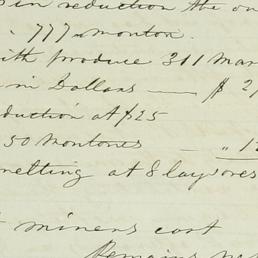 in reduction the on
777 monton.
ith produce 311 Mar
in Dollars — $ 2
duction at $25
50 Montones — " 1
melting at 8 lay ores
miners cost
Remains